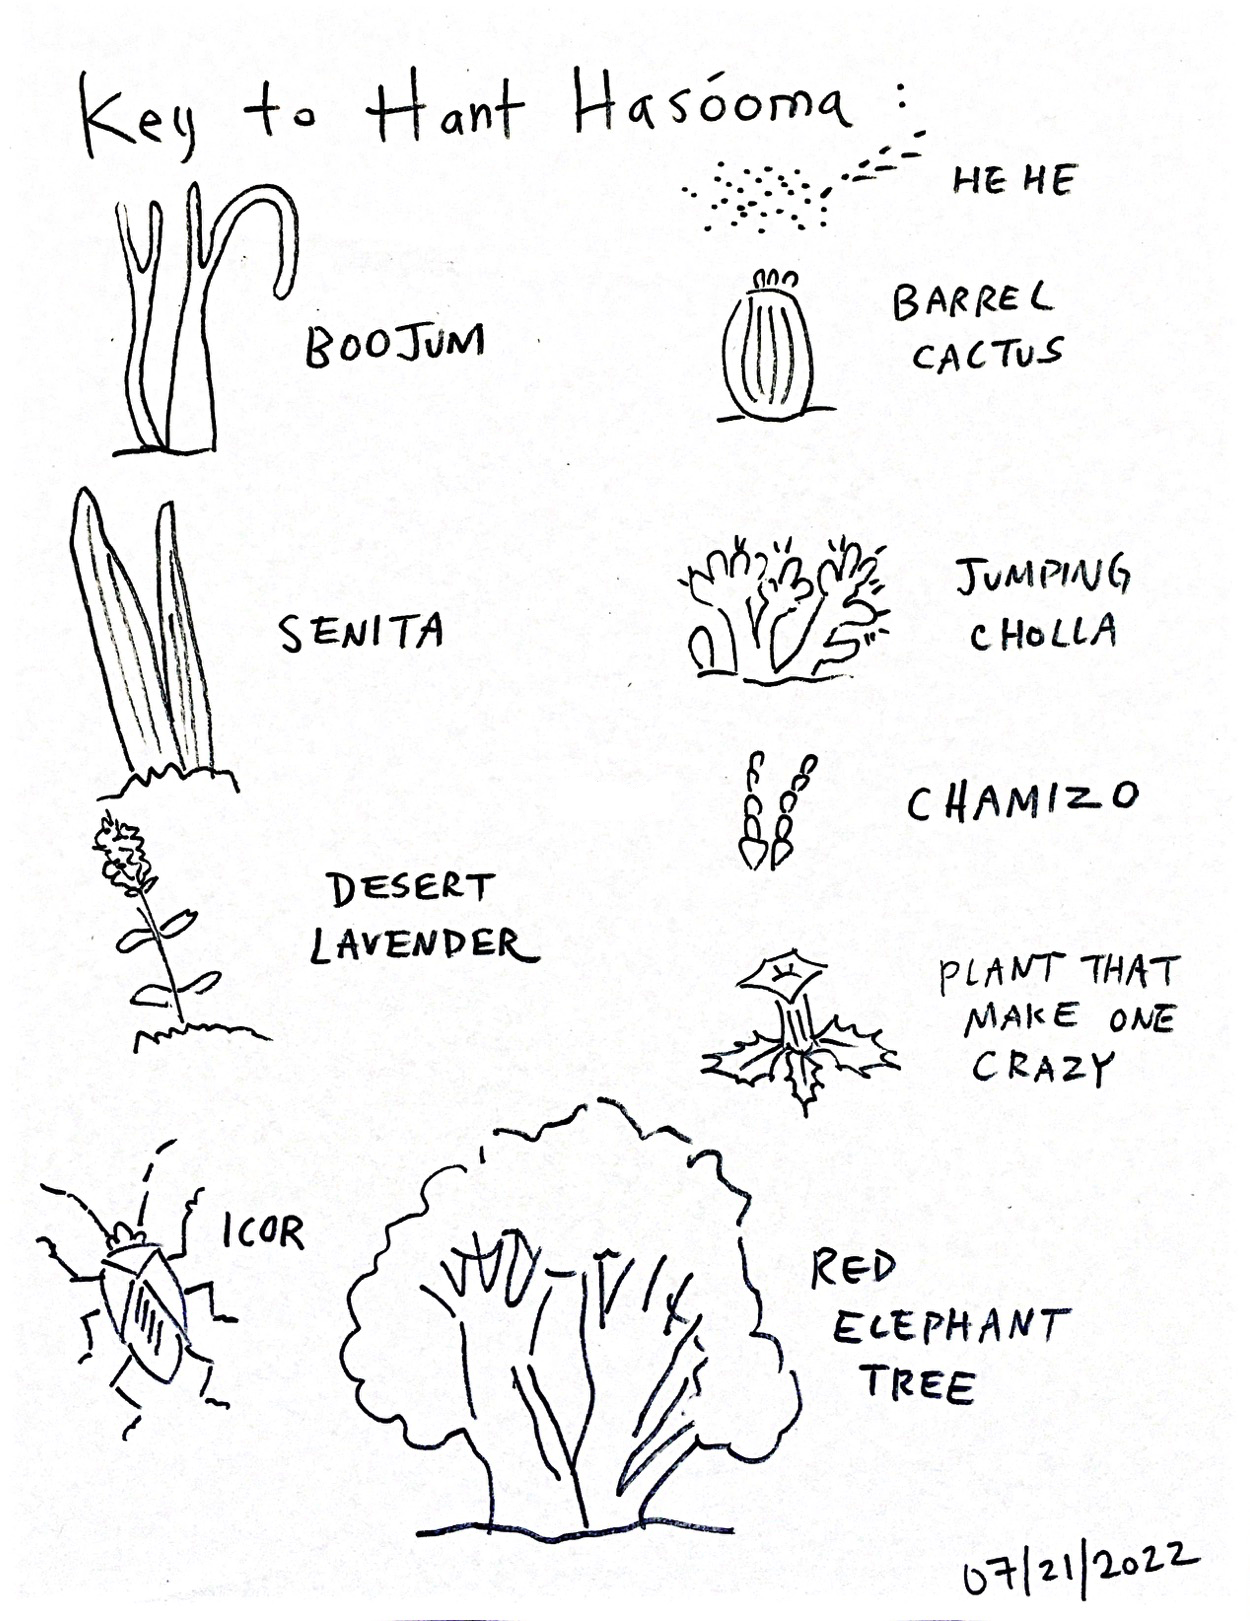 Key to Hant Hasóoma :
HE HE
BOOJUM
BARREL
CACTUS
SENITA
JUMPING
CHOLLA
CHAMIZO
DESERT
LAVENDER
PLANT THAT
MAKE ONE
CRAZY
ICOR
RED
ELEPHANT
TREE
07/21/2022